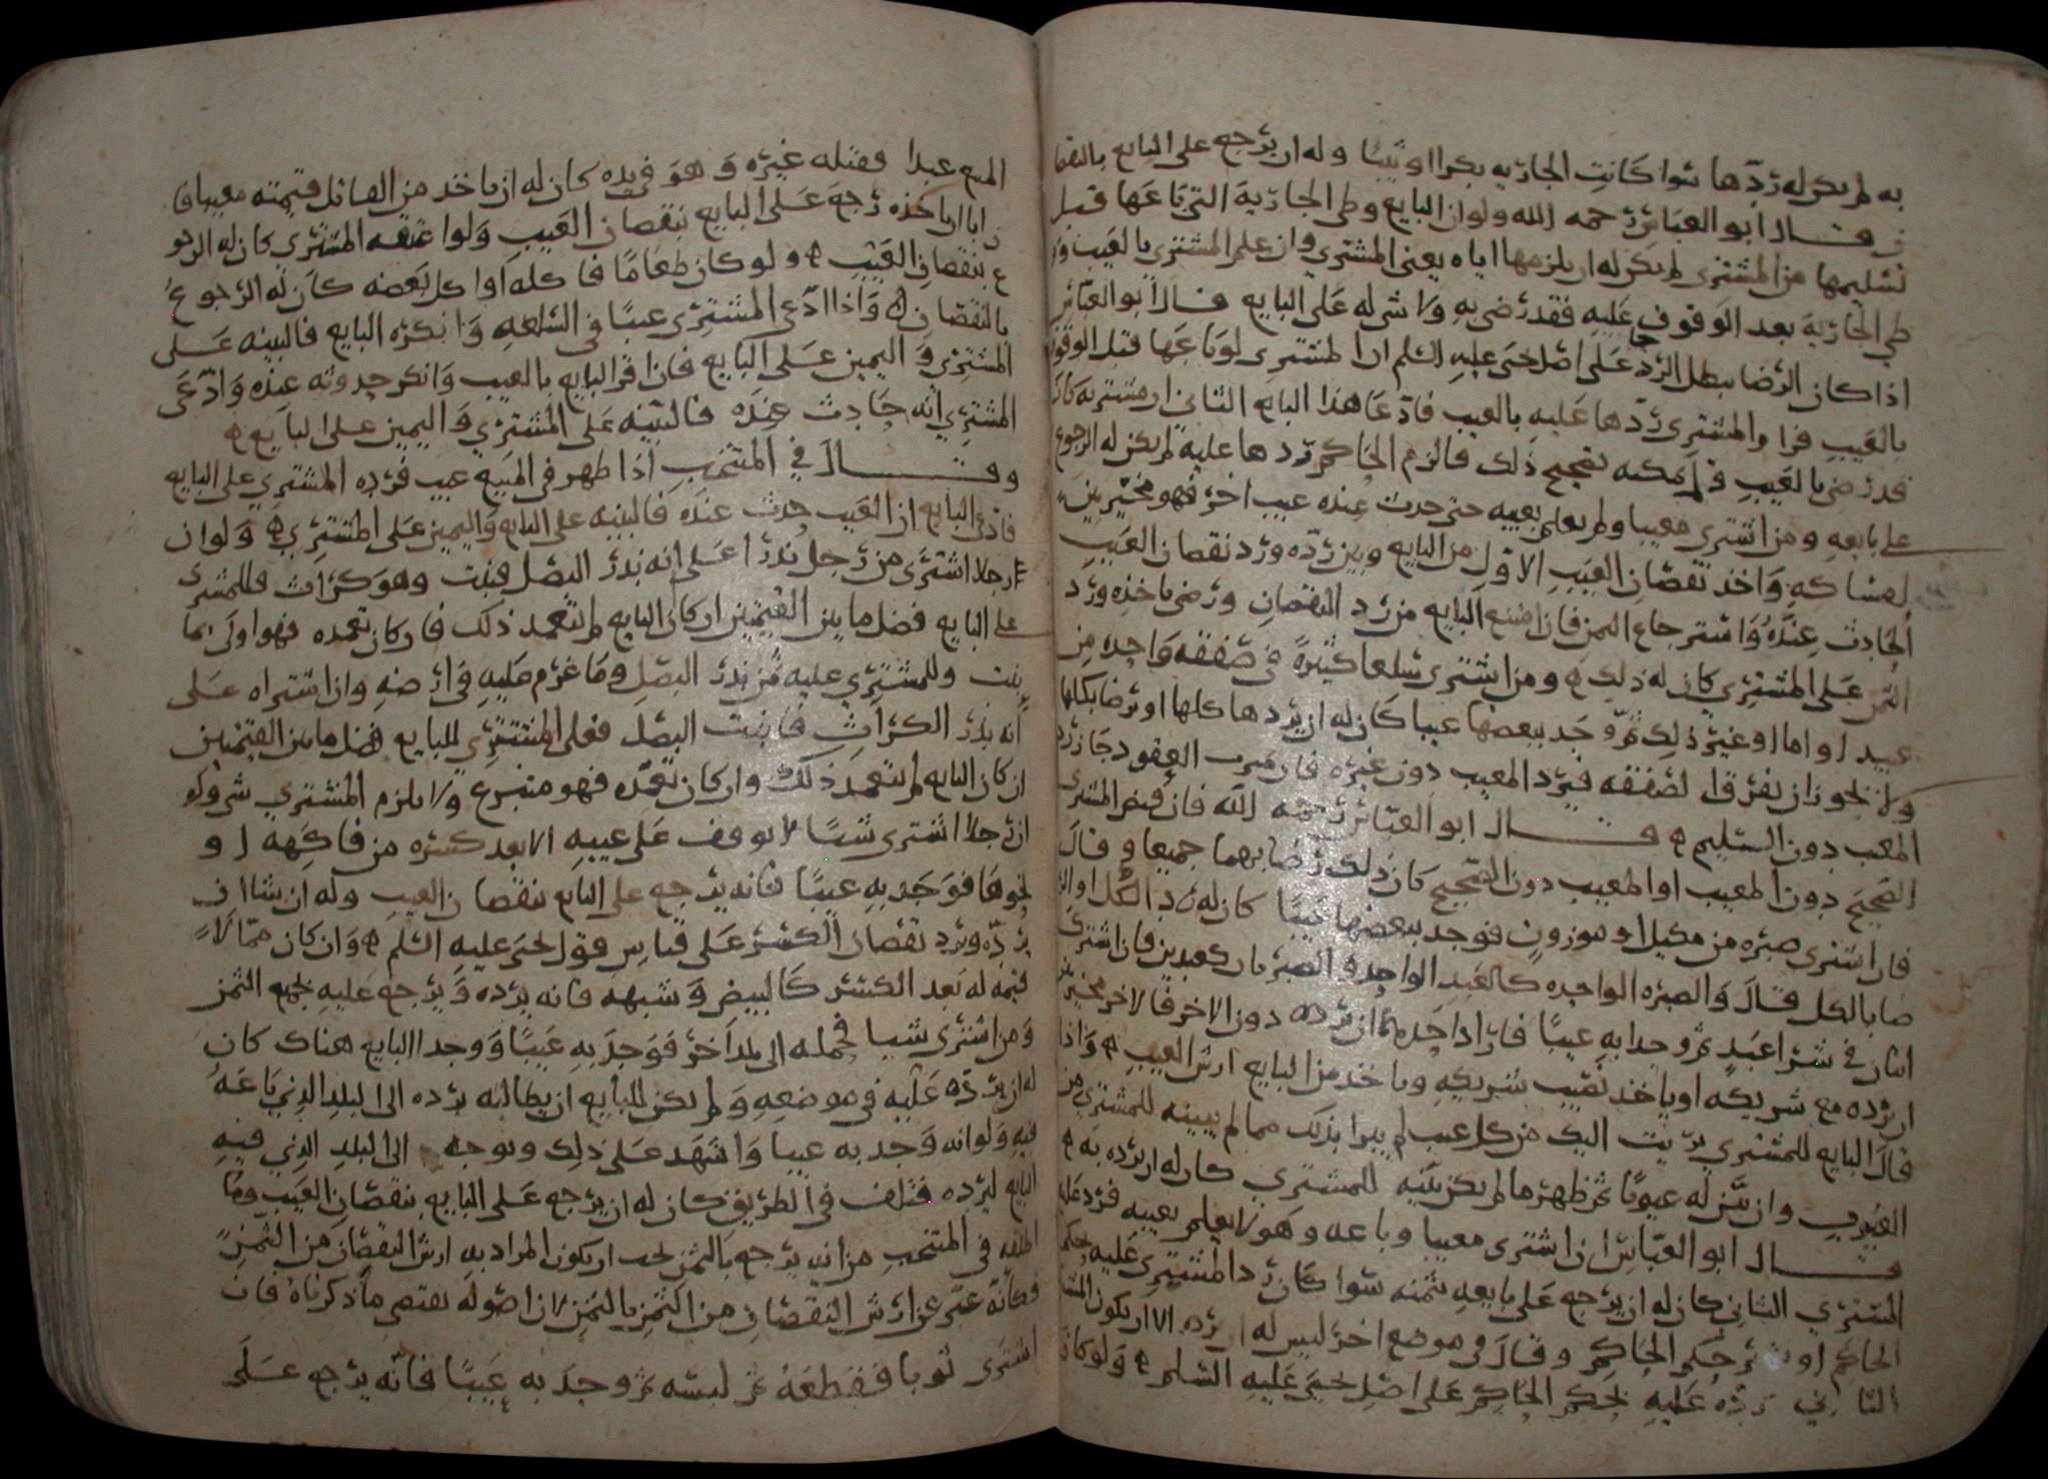 به لم يكن له ردّها سوا كانت الجاريه بكرا او ثيبا وله ان يرجع على البايع بالنقصا
ن قال ابو العباس رحمه الله ولو ان البايع وطى الجارية التي باعها قبل
تسليمها من المشتري لم يكن له ان يلزمها اياه يعني المشتري وان علم المشتري بالعيب وو
طي الجارية بعد الوقوف عليه فقد رضي به ولا شى له على البايع قال ابو العباس
اذا كان الرضا يبطل الرد جا على اصل يحيى عليه السلم ان المشتري لو باعها قبل الوقوف
بالعيب فرا والمشتري ردّها عليه بالعيب فادّعا هذا البايع الثاني ان مشتريه كان
قد رضي بالعيب فلم يمكنه تصحيح ذلك فالزم الحاكم ردها عليه لم يكن له الرجوع
على بايعه ومن اشترى معيبا ولم يعلم بعيبه حتى حدث عنده عيب اخر فهو مخير بين
امساكه واخذ نقصان العيب الاول من البايع وبين ردّه ورد نقصان العيب
الحادث عنده واسترجاع الثمن فان امتنع البايع من رد النقصان ورضي باخذه ورد
الثمن على المشتري كان له ذلك ه ومن اشترى سلعا كثيرة في صفقه واحده من
عبيد او اما او غير ذلك ثم وجد ببعضها عيبا كان له ان يردها كلها او يرضا بكلها
ولا يجوز ان يفرق الصفقه فيرد المعيب دون غيره فان ميزت العقود جاز رد
المعيب دون السليم ه قال ابو العباس رحمه الله فان قبض المشتري
الصحيح دون المعيب او المعيب دون الصحيح كان ذلك رضا بهما جميعا وقال
فان اشترى صبره من مكيل او موزون فوجد ببعضها عيبا كان له رد الكل او الر
ضا بالكل قال والصبره الواحده كالعبد الواحد والصبرتان كعبدين فان اشترك
اثنان في شرا عبد ثم وجدا به عيبا فاراد احدهما ان يرده دون الاخر فالاخر مخير بين
ان يرده مع شريكه او ياخذ نصيب شريكه وياخذ من البايع ارش العيب ه واذا
قال البايع للمشتري بريت اليك من كل عيب لم يبرا بذلك مما لم يبينه للمشتري من
العيوب وان بيّن له عيوبا ثم ظهر ما لم يكن بيّنه للمشتري كان له ان يرده به ه
قال ابو العباس ان اشترى معيبا وباعه وهو لا يعلم بعيبه فرد عليه
المشتري الثاني كان له ان يرجع على بايعه بثمنه سوا كان رد المشتري عليه بحكم
الحاكم او بغير حكم الحاكم وقال في موضع اخر ليس له ان يرده الا ان يكون المشتري
الثاني ردّه عليه بحكم الحاكم على اصل يحيى عليه السلم ه ولو كان
المبيع عبدا فقتله غيره وهو في يده كان له ان ياخذ من القاتل قيمته معيبا فا
ن ابا ان ياخذه رجع على البايع بنقصان العيب ولو اعتقه المشتري كان له الرجو
ع بنقصان العيب ه ولو كان طعاما فاكله او اكل بعضه كان له الرجوع
بالنقصان ه واذا ادّعى المشتري عيبا في السلعه وانكره البايع فالبينه على
المشتري واليمين على البايع فان اقر البايع بالعيب وانكر حدوثه عنده وادّعى
المشتري انه حادث عنده فالبينه على المشتري واليمين على البايع ه
وقال في المنتخب اذا ظهر في المبيع عيب فرده المشتري على البايع
فادعى البايع ان العيب حدث عنده فالبينه على البايع واليمين على المشتري ه ولو ان
رجلا اشترى من رجل بذرا على انه بذر البصل فنبت وهو كراث فللمشترى
على البايع فضل ما بين القيمتين ان كان البايع لم يتعمد ذلك فان كان تعمده فهو اولى بما
نبت وللمشتري عليه ثمن بذر البصل وما غرم عليه في ارضه وان اشتراه على
انه بذر الكراث فانبت البصل فعلى المشتري للبايع فضل ما بين القيمتين
ان كان البايع لم يتعمد ذلك وان كان تعمده فهو متبرع ولا يلزم المشتري شى ولو
ان رجلا اشترى شيا لا يوقف على عيبه الا بعد كسره من فاكهه او
نحوها فوجد به عيبا فانه يرجع على البايع بنقصان العيب وله ان شا ان
يردّه ويرد نقصان الكسر على قياس قول يحيى عليه السلم ه وان كان مما لا
قيمة له بعد الكسر كالبيض وشبهه فانه يرده ويرجع عليه بجميع الثمن
ومن اشترى شيا فحمله الى بلد اخر فوجد به عيبا ووجد البايع هناك كان
له ان يردّه عليه في موضعه ولم يكن للبايع ان يطالبه برده الى البلد الذي باعه
فيه ولو انه وجد به عيبا واشهد على ذلك وتوجه الى البلد الذي فيه
البايع ليرده فتلف في الطريق كان له ان يرجع على البايع بنقصان العيب وما
اطلقه في المنتخب من انه يرجع بالثمن يجب ان يكون المراد به ارش النقصان من الثمن
فكانه عبّر عن ارش النقصان من الثمن بالثمن لان اصوله تقتضي ما ذكرناه فان
اشترى ثوبا فقطعه ثم لبسه ثم وجد به عيبا فانه يرجع على